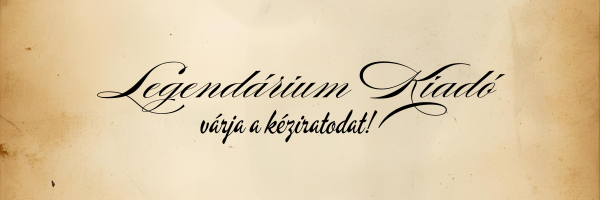 Legendárium Kiadó
várja a kéziratodat!